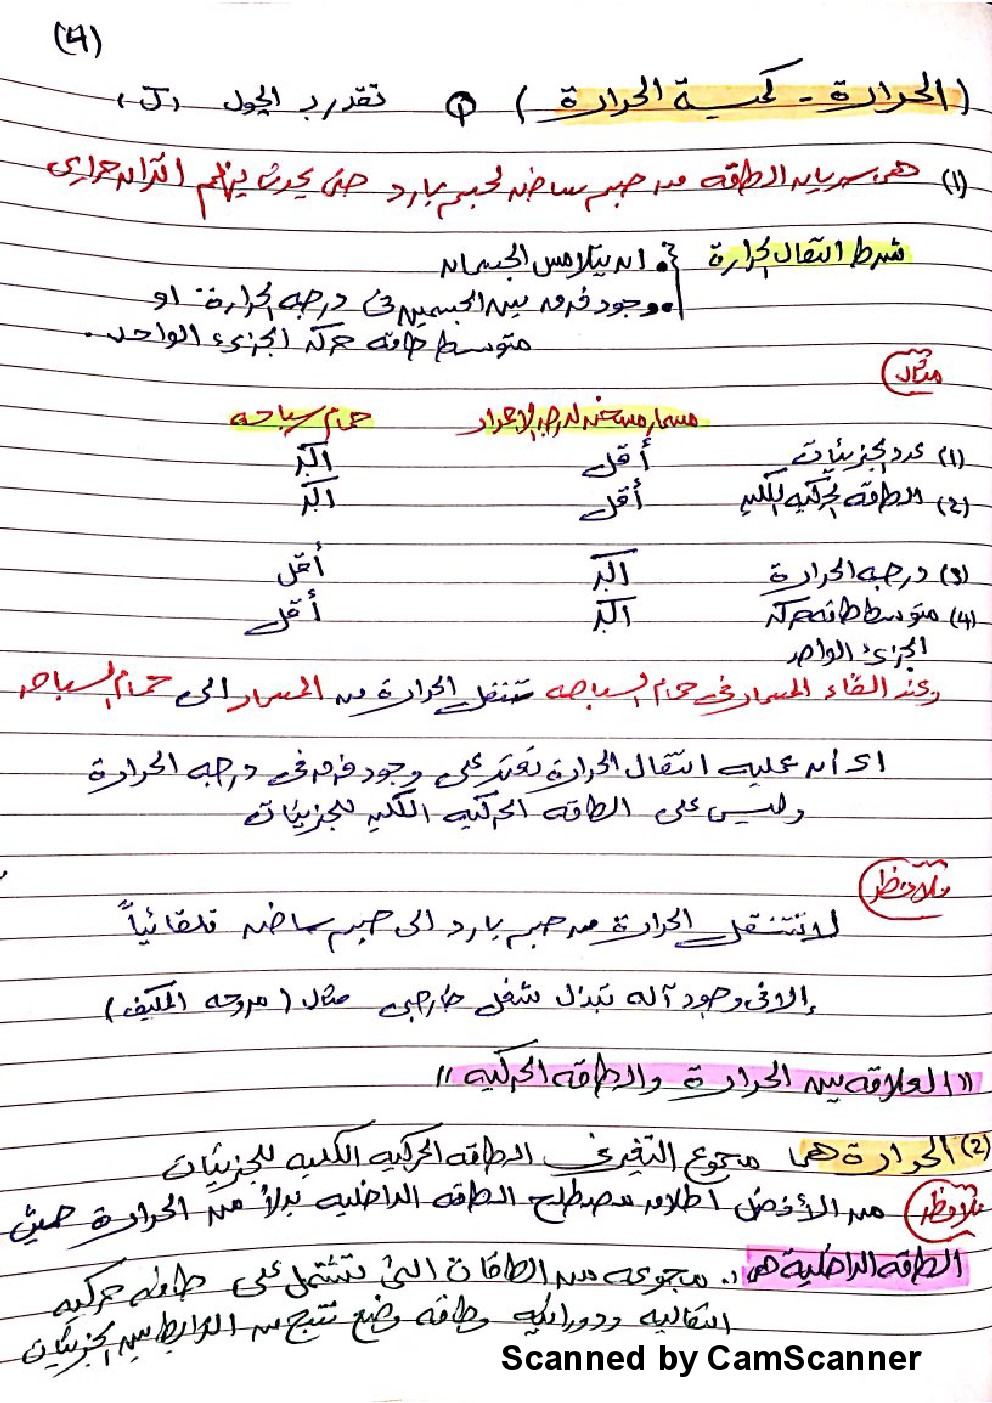 (4)
(الحرارة - كمية الحرارة) Q تقدر بـ الجول (J)
(1) هى سريان الطاقه من جسم ساخن لجسم بارد حتى يحدث بينهم اتزان حرارى
شرط انتقال الحرارة • ان يتلامس الجسمان
• وجود فرق بين الجسمين فى درجه الحرارة او
متوسط طاقه حركه الجزىء الواحد.
مثال
مسمار مسخن لدرجه الاحمرار حمام سباحه
(1) عدد الجزيئات أقل اكبر
(2) الطاقه الحركيه الكليه أقل اكبر
(3) درجه الحرارة اكبر أقل
(4) متوسط طاقه حركه اكبر أقل
الجزىء الواحد
وعند القاء المسمار فى حمام السباحه تنتقل الحرارة من المسمار الى حمام السباحه
اى ان عمليه انتقال الحرارة تعتمد على وجود فرق فى درجه الحرارة
وليس على الطاقه الحركيه الكليه للجزيئات
ملاحظه
لا تنتقل الحرارة من جسم بارد الى جسم ساخن تلقائياً
إلا فى وجود آله تبذل شغل خارجى مثال (مروحه المكيف)
"العلاقه بين الحرارة والطاقه الحركيه"
(2) الحرارة هى مجموع التغير فى الطاقه الحركيه الكليه للجزيئات
ملاحظه من الأفضل اطلاق مصطلح الطاقه الداخليه بدلاً من الحرارة حيث
الطاقه الداخلية هى: مجموعه من الطاقات التى تشتمل على طاقه حركيه
انتقاليه ودورانيه وطاقه وضع تنتج من الروابط بين الجزيئات
Scanned by CamScanner